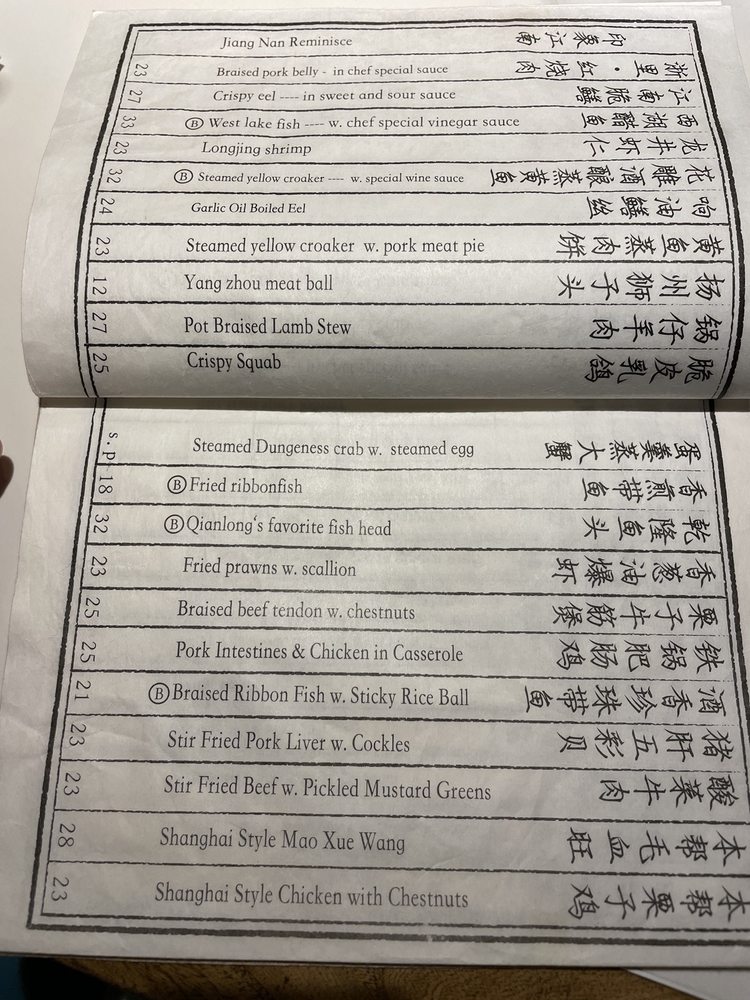 印象江南 Jiang Nan Reminisce
浙里·红烧肉 Braised pork belly - in chef special sauce 23
江南脆鳝 Crispy eel ---- in sweet and sour sauce 27
西湖醋鱼 Ⓑ West lake fish ---- w. chef special vinegar sauce 33
龙井虾仁 Longjing shrimp 23
花雕酒酿蒸黄鱼 Ⓑ Steamed yellow croaker ---- w. special wine sauce 32
响油鳝丝 Garlic Oil Boiled Eel 24
黄鱼蒸肉饼 Steamed yellow croaker w. pork meat pie 23
扬州狮子头 Yang zhou meat ball 12
锅仔羊肉 Pot Braised Lamb Stew 27
脆皮乳鸽 Crispy Squab 25
蛋羹蒸大蟹 Steamed Dungeness crab w. steamed egg s.p
香煎带鱼 Ⓑ Fried ribbonfish 18
乾隆鱼头 Ⓑ Qianlong's favorite fish head 32
香葱油爆虾 Fried prawns w. scallion 23
栗子牛筋煲 Braised beef tendon w. chestnuts 25
铁锅肥肠鸡 Pork Intestines & Chicken in Casserole 25
酒香珍珠带鱼 Ⓑ Braised Ribbon Fish w. Sticky Rice Ball 21
猪肝五彩贝 Stir Fried Pork Liver w. Cockles 23
酸菜牛肉 Stir Fried Beef w. Pickled Mustard Greens 23
本帮毛血旺 Shanghai Style Mao Xue Wang 28
本帮栗子鸡 Shanghai Style Chicken with Chestnuts 23